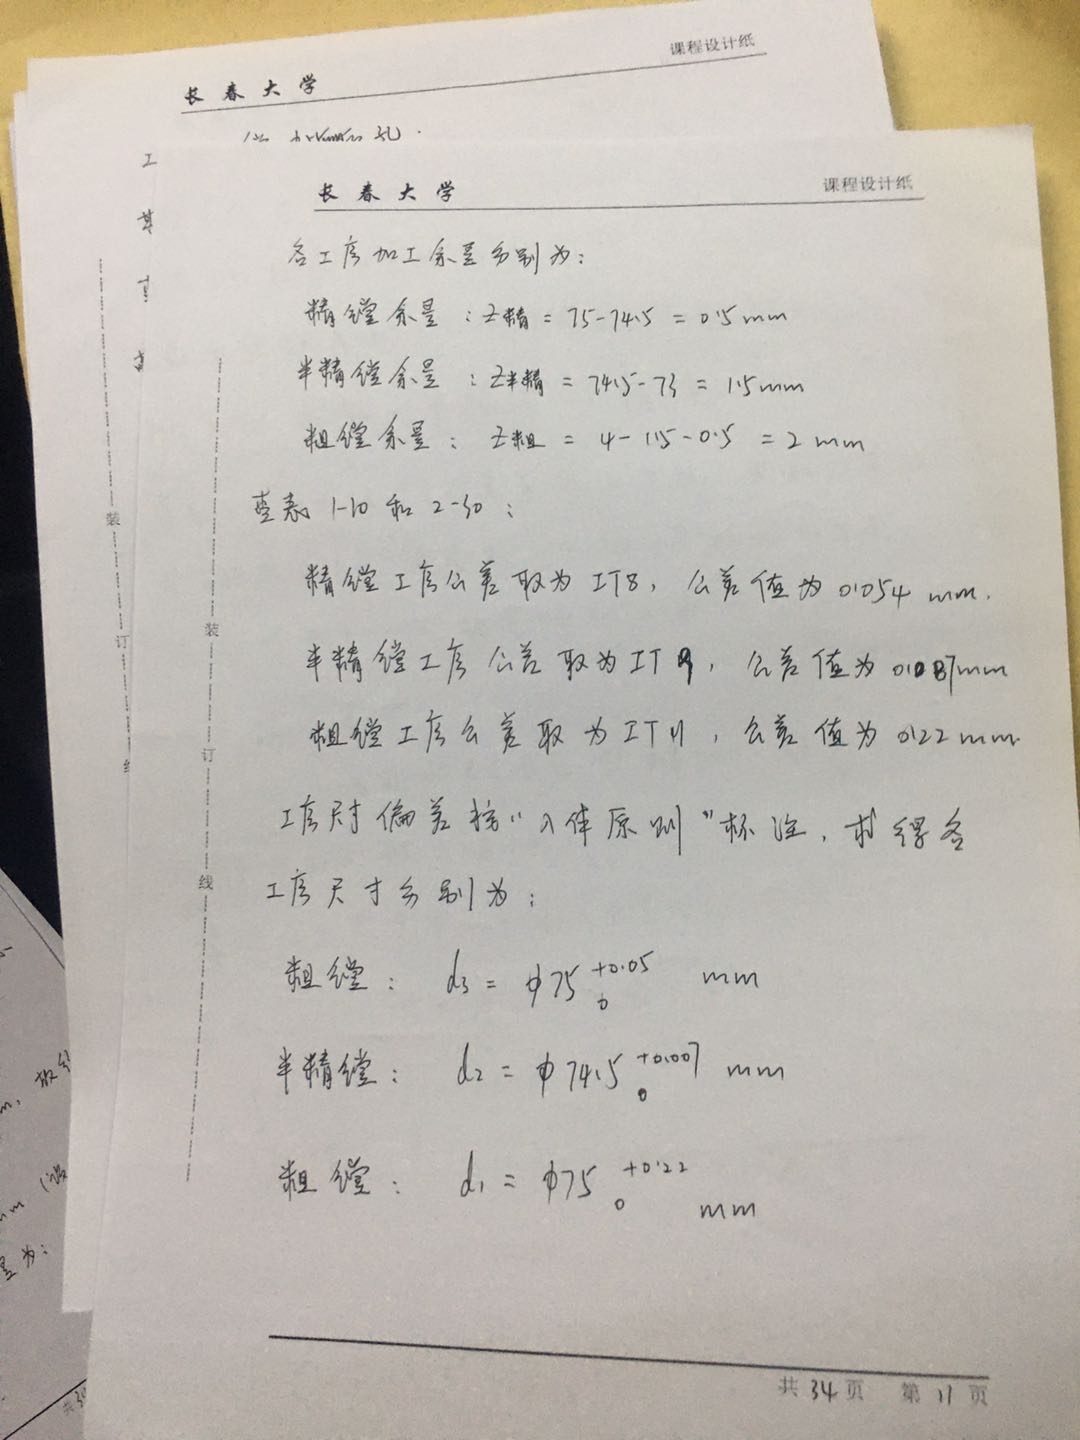 课程设计纸
长春大学
工
其
课程设计纸
长春大学
各工序加工余量分别为：
精镗余量：Z精＝75-74.5＝0.5mm
半精镗余量：Z半精＝74.5-73＝1.5mm
粗镗余量：Z粗＝4-1.5-0.5＝2mm
查表1-10和2-30：
精镗工序公差取为IT8，公差值为0.054mm.
半精镗工序公差取为IT9，公差值为0.087mm
粗镗工序公差取为IT11，公差值为0.22mm.
工序尺寸偏差按"入体原则"标注，求得各
工序尺寸分别为：
粗镗：d3＝φ75 +0.05 0 mm
半精镗：d2＝φ74.5 +0.007 0 mm
粗镗：d1＝φ75 +0.22 0 mm
装
订
装
订
线
共34页 第11页
量为：